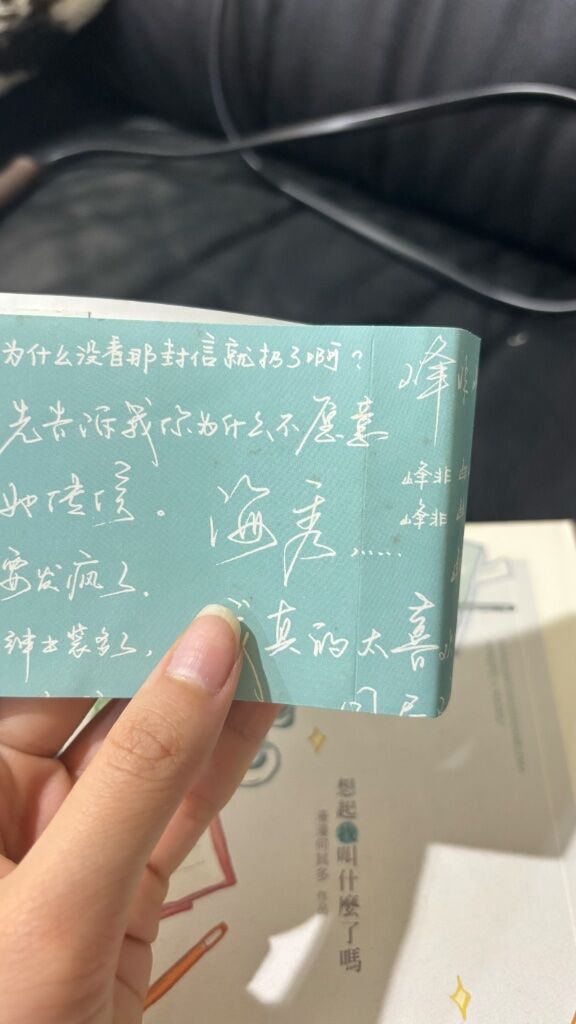 为什么没看那封信就扔了啊？
先告诉我你为什么不愿意
峰
峰非
峰非
海秀……
要发疯了.
绅士装多了,
真的太喜
想起我叫什麼了嗎
漫漫何其多 作品